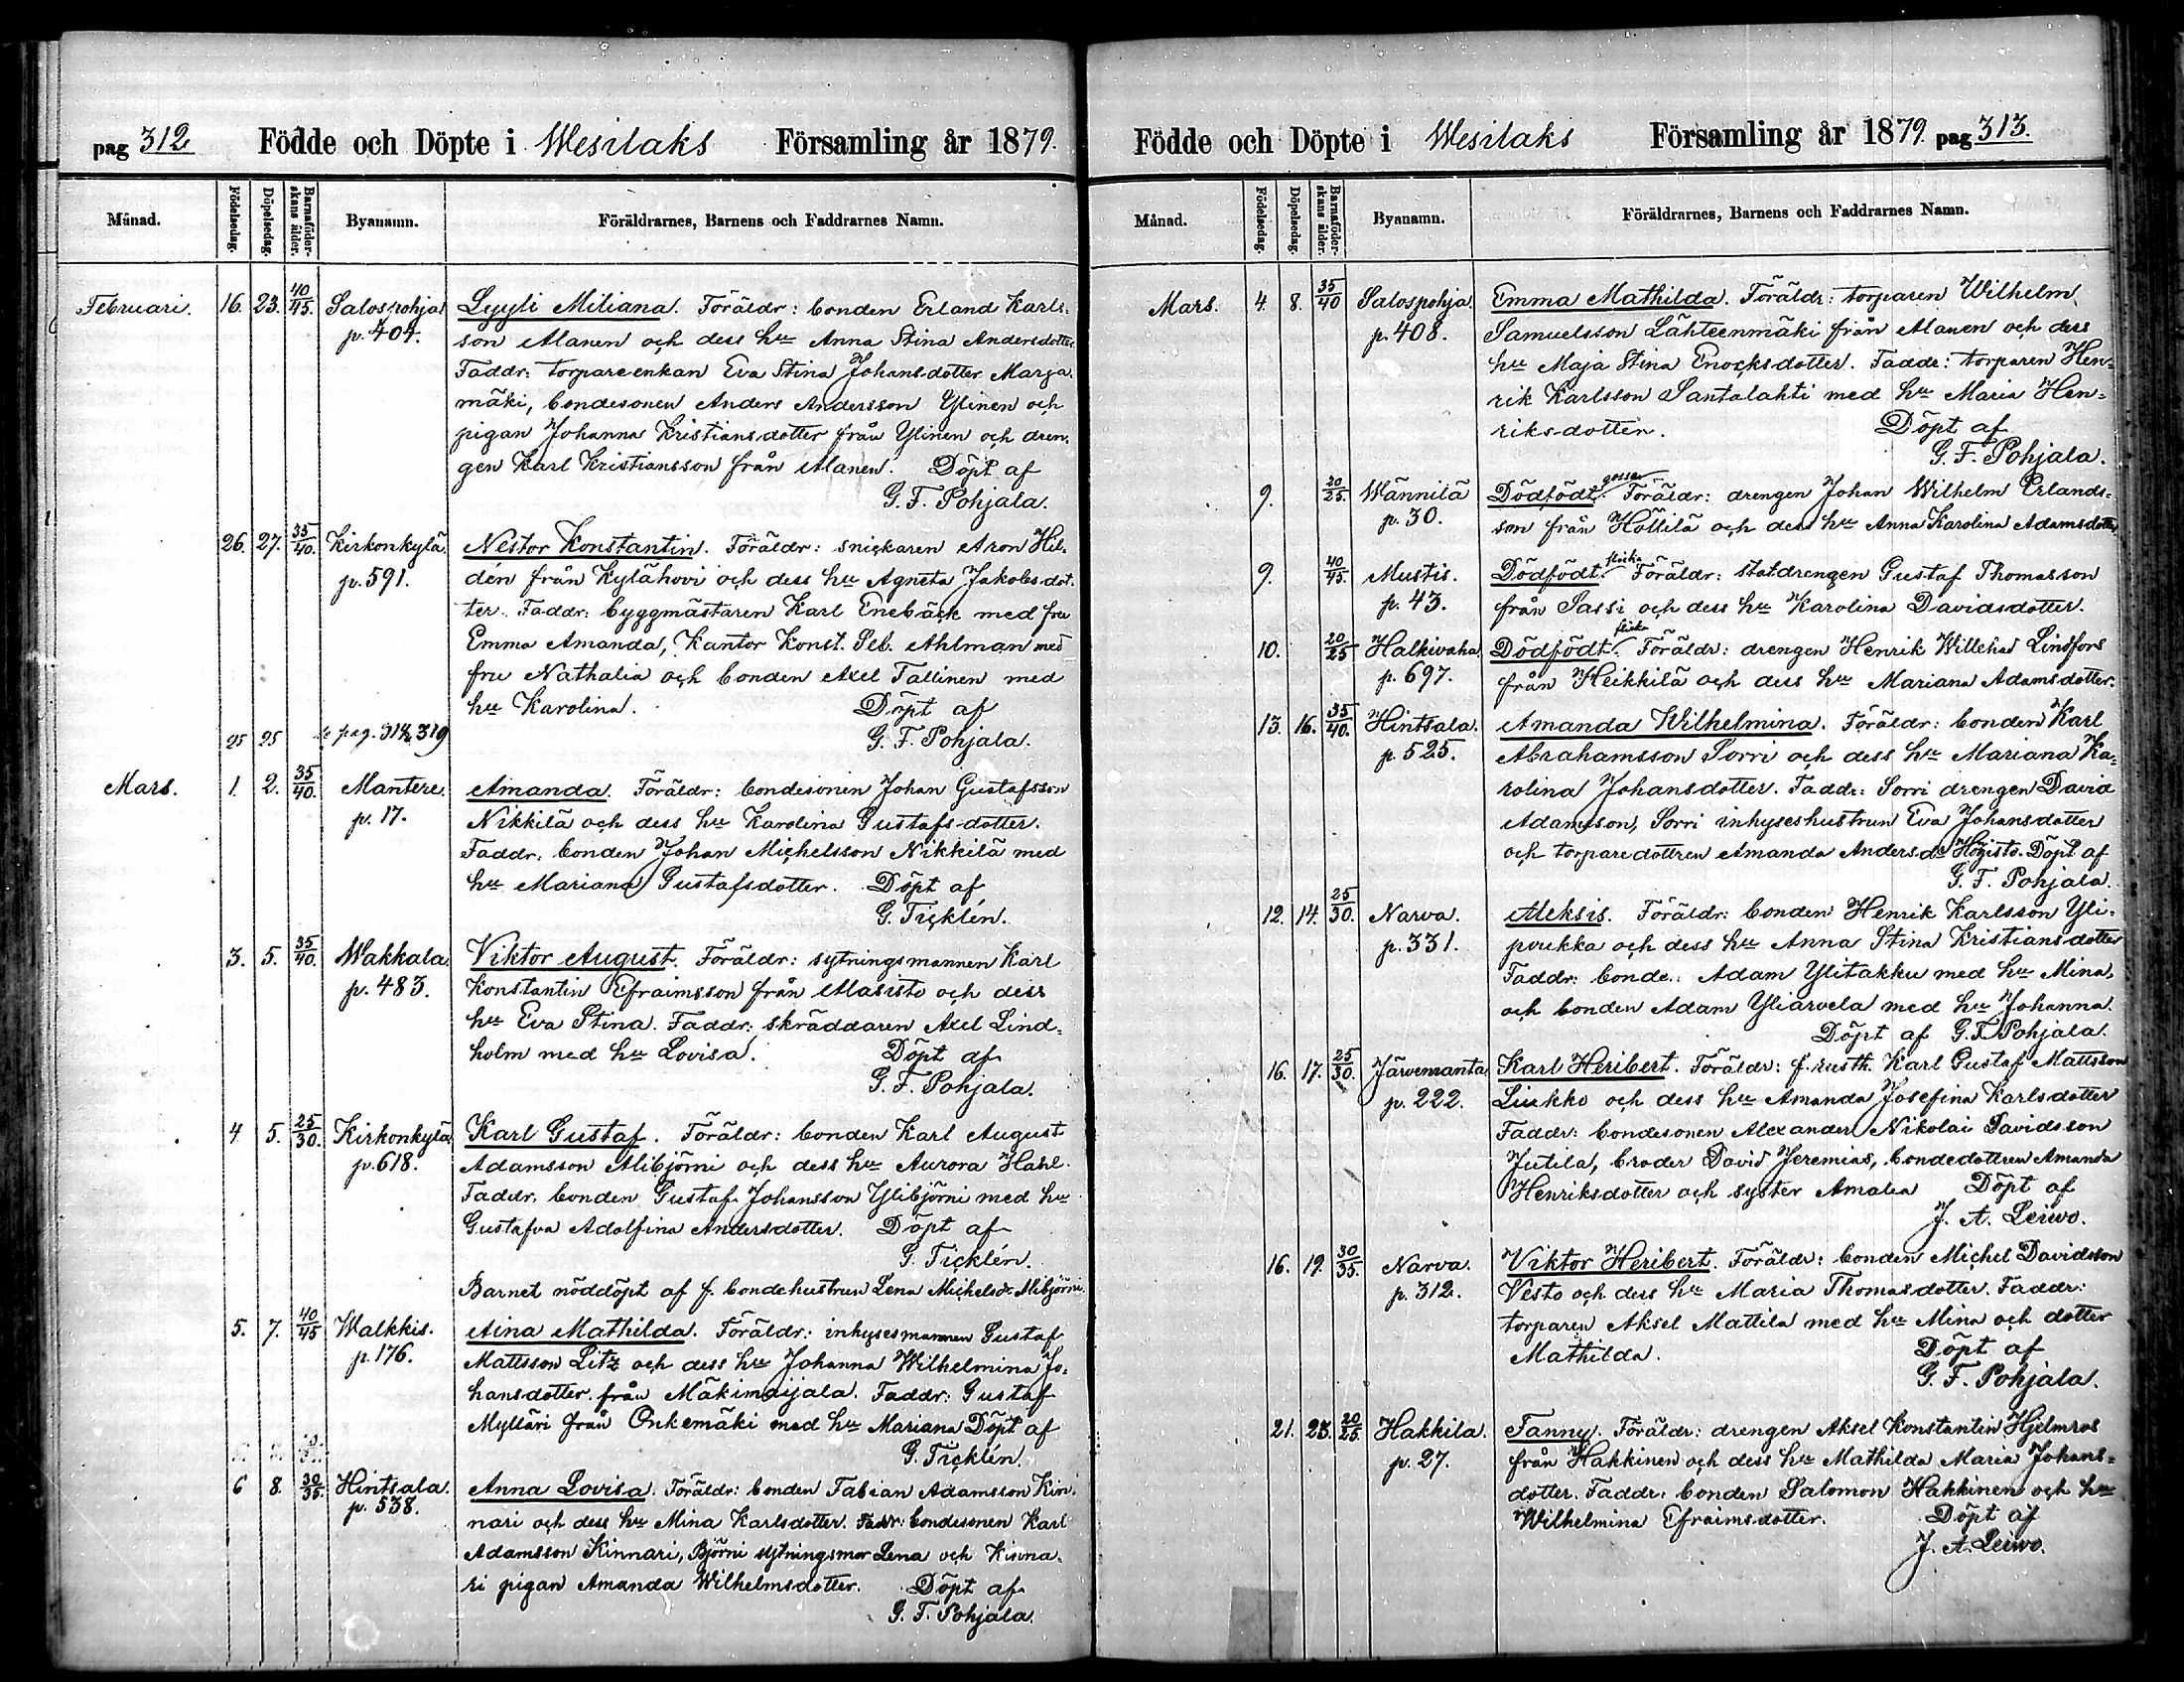 pag 312 Födde och Döpte i Wesilaks Församling år 1879.
Månad. Födelsedag. Döpelsedag. Barnaföderskans ålder. Byanamn. Föräldrarnes, Barnens och Faddrarnes Namn.
Februari. 16. 23. 40/45. Salospohja Lyyli Miliana. Föräldr: bonden Erland Karls-
p. 404. son Alanen och dess hu Anna Stina Andersdotter
Faddr: torpareenkan Eva Stina Johansdotter Marja-
mäki, bondesonen Anders Andersson Ylinen och
pigan Johanna Kristiansdotter från Ylinen och dren-
gen Karl Kristiansson från Alanen. Döpt af
G. F. Pohjala.
26. 27. 35/40. Kirkonkylä Nestor Konstantin. Föräldr: snickaren Aron Hil-
p. 591. dén från Kylähovi och dess hu Agneta Jakobsdot-
ter. Faddr: byggmästaren Karl Enebäck med fru
Emma Amanda, Kantor Konst. Seb. Ahlman med
fru Nathalia och bonden Axel Tallinen med
hu Karolina. Döpt af
25 25 pag. 319 G. F. Pohjala.
Mars. 1. 2. 35/40. Mantere. Amanda. Föräldr: bondesonen Johan Gustafsson
p. 17. Nikkilä och dess hu Karolina Gustafsdotter.
Faddr: bonden Johan Michelsson Nikkilä med
hu Mariana Gustafsdotter. Döpt af
G. Ticklén.
3. 5. 35/40. Wakkala. Viktor August. Föräldr: sytningsmannen Karl
p. 483. Konstantin Efraimsson från Alasisto och dess
hu Eva Stina. Faddr: skräddaren Axel Lind-
holm med hu Lovisa. Döpt af
G. F. Pohjala.
4. 5. 25/30. Kirkonkylä Karl Gustaf. Föräldr: bonden Karl August
p. 618. Adamsson Alibjörni och dess hu Aurora Hahl.
Faddr. bonden Gustaf Johansson Ylibjörni med hu
Gustafva Adolfina Andersdotter. Döpt af
G. Ticklén.
Barnet nöddöpt af f. bondehustrun Lena Michelsdr Alibjörni.
5. 7. 40/45 Walkkis. Aina Mathilda. Föräldr: inhysesmannen Gustaf
p. 176. Mattsson Litz och dess hu Johanna Wilhelmina Jo-
hansdotter från Mäkimaijala. Faddr: Gustaf
Mylläri från Onkemäki med hu Mariana Döpt af
G. Ticklén.
6 8. 30/35. Hintsala. Anna Lovisa. Föräldr: bonden Fabian Adamsson Kin-
p. 538. nari och dess hu Mina Karlsdotter. Faddr: bondesonen Karl
Adamsson Kinnari, Björni sytningsmor Lena och Kinna-
ri pigan Amanda Wilhelmsdotter. Döpt af
G. F. Pohjala.
Födde och Döpte i Wesilaks Församling år 1879. pag 313.
Månad. Födelsedag. Döpelsedag. Barnaföderskans ålder. Byanamn. Föräldrarnes, Barnens och Faddrarnes Namn.
Mars. 4. 8. 35/40 Salospohja. Emma Mathilda. Föräldr: torparen Wilhelm
p. 408. Samuelsson Lähteenmäki från Alanen och dess
hu Maja Stina Enocksdotter. Faddr: torparen Hen-
rik Karlsson Santalahti med hu Maria Hen-
riksdotter. Döpt af
G. F. Pohjala.
9. 20/25. Wännilä Dödfödt gosse. Föräldr: drengen Johan Wilhelm Erlands-
p. 30. son från Höttilä och dess hu Anna Karolina Adamsdotter
9. 40/45. Mustis. Dödfödt flicka. Föräldr: statdrengen Gustaf Thomasson
p. 43. från Sassi och dess hu Karolina Davidsdotter.
10. 20/25 Halkivaha. Dödfödt flicka. Föräldr: drengen Henrik Willehad Lindfors
p. 697. från Heikkilä och dess hu Mariana Adamsdotter.
13. 16. 35/40. Hintsala. Amanda Wilhelmina. Föräldr: bonden Karl
p. 525. Abrahamsson Sorri och dess hu Mariana Ka-
rolina Johansdotter. Faddr: Sorri drengen David
Adamsson, Sorri inhyseshustrun Eva Johansdotter
och torparedottren Amanda Andersdr Höijsto. Döpt af
G. F. Pohjala.
12. 14. 25/30. Narva. Aleksis. Föräldr: bonden Henrik Karlsson Yli-
p. 331. pukka och dess hu Anna Stina Kristiansdotter
Faddr: bonde. Adam Ylitakku med hu Mina,
och bonden Adam Yliarvela med hu Johanna.
Döpt af G. F. Pohjala.
16. 17. 25/30. Järvenranta Karl Heribert. Föräldr: f. rusth. Karl Gustaf Mattsson
p. 222. Liukko och dess hu Amanda Josefina Karlsdotter
Faddr: bondesonen Alexander Nikolai Davidsson
Jutila, broder David Jeremias, bondedottren Amanda
Henriksdotter och syster Amalia Döpt af
J. A. Leiwo.
16. 19. 30/35. Narva. Viktor Heribert. Föräldr: bonden Michel Davidsson
p. 312. Vesto och dess hu Maria Thomasdotter. Faddr:
torparen Aksel Mattila med hu Mina och dotter
Mathilda. Döpt af
G. F. Pohjala.
21. 23. 20/25. Hakkila. Fanny. Föräldr: drengen Aksel Konstantin Hjelmros
p. 27. från Hakkinen och dess hu Mathilda Maria Johans-
dotter. Faddr: bonden Salomon Hakkinen och hu
Wilhelmina Efraimsdotter. Döpt af
J. A. Leiwo.